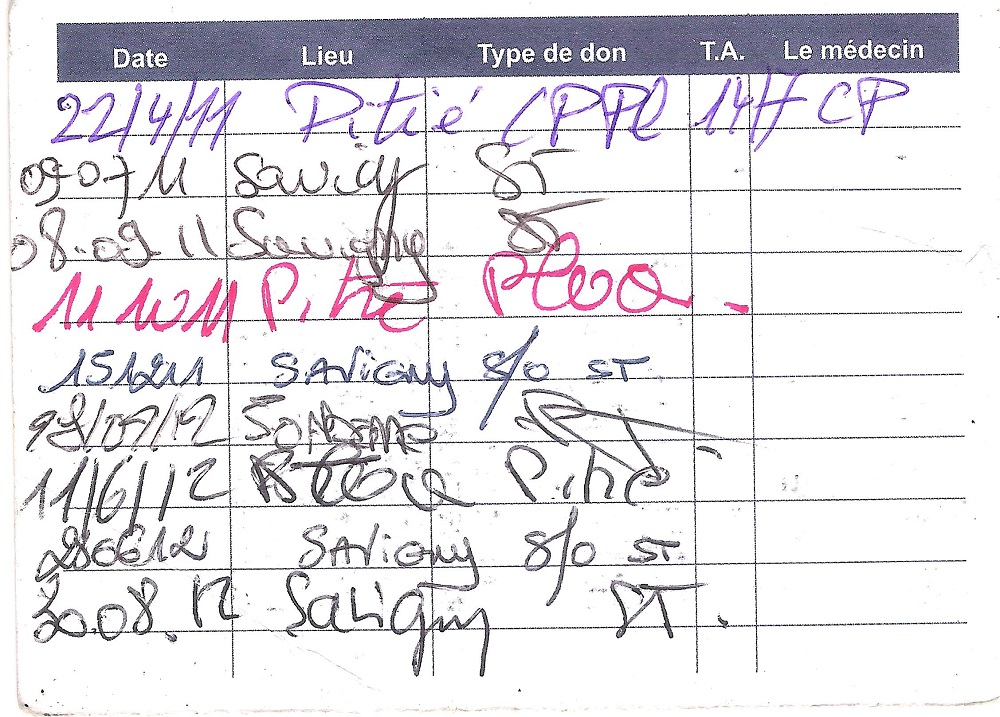 Date Lieu Type de don T.A. Le médecin
22/4/11 Pitié CPPl 14/7 CP
09 07 11 Savigny ST
08.09 11 Savigny ST
11 10 11 Pitié
151211 SAVigny S/O ST
11/6/12 Pitié
280612 SAVigny S/O ST
30.08.12 Savigny ST.